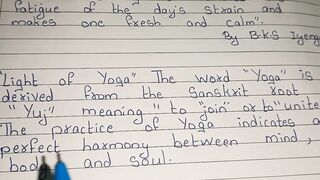 fatigue of the day's strain and
makes one fresh and calm".
By B.K.S Iyeng
"Light of Yoga" The word "Yoga" is
derived from the Sanskrit root
"Yuj" meaning "to "join" or to "unite
The practice of Yoga indicates a
perfect harmony between mind,
bod and soul.